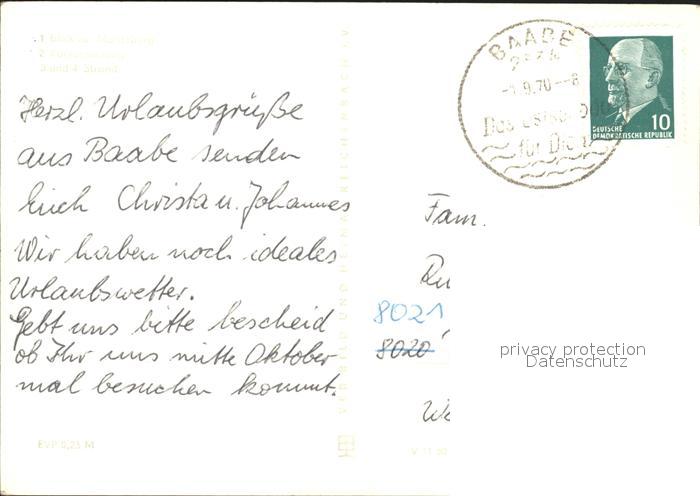 3 und 4 Strand
Herzl. Urlaubsgrüße
aus Baabe senden
Euch Christa u. Johannes
Wir haben noch ideales
Urlaubswetter.
Gebt uns bitte bescheid
ob Ihr uns mitte Oktober
mal besuchen kommt.
EVP 0,25 M
VEB BILD UND HEIMAT REICHENBACH i. V.
BAABE
-1.9.70--8
für Dich
10
DEUTSCHE
DEMOKRATISCHE REPUBLIK
Fam.
8021
8020
privacy protection
Datenschutz